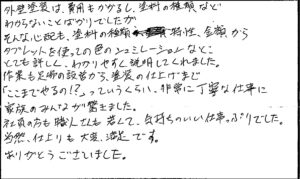 外壁塗装は、費用もかかるし、塗料の種類など
わからないことばかりでしたが
そんな心配も、塗料の種類 特性、金額から
タブレットを使っての色のシュミレーションなど
とても詳しく、わかりやすく説明してくれました。
作業も足場の設営から、塗装の仕上げまで
「ここまでやるの!?」っていうくらい、非常に丁寧な仕事に
家族のみんなが驚きました。
社員の方も職人さんも若くて、気持ちのいい仕事っぷりでした。
当然、仕上りも大変、満足です。
ありがとうございました。